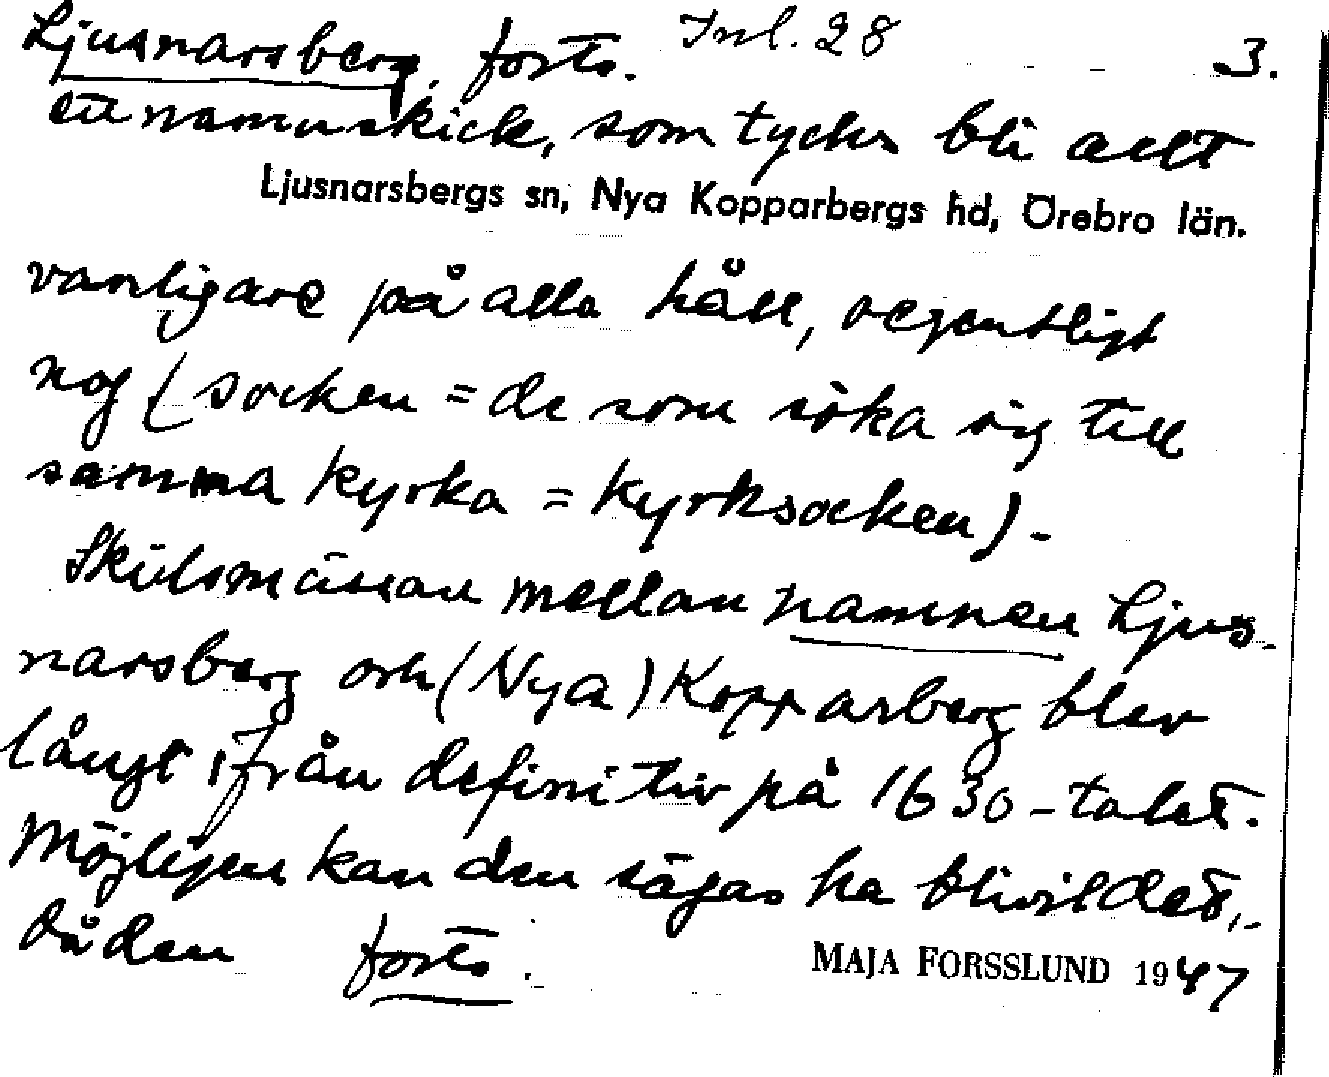 Ljusnarsberg, forts. Inl. 28 3.
ett namnskick, som tycks bli allt
Ljusnarsbergs sn, Nya Kopparbergs hd, Örebro län.
vanligare på alla håll, oegentligt
nog (socken = de som söka sig till
samma kyrka = kyrksocken). -
Skilsmässan mellan namnen Ljus-
narsberg och (Nya) Kopparberg blev
långt ifrån definitiv på 1630-talet.
Möjligen kan den sägas ha blivit det, -
då den forts.
MAJA FORSSLUND 1947